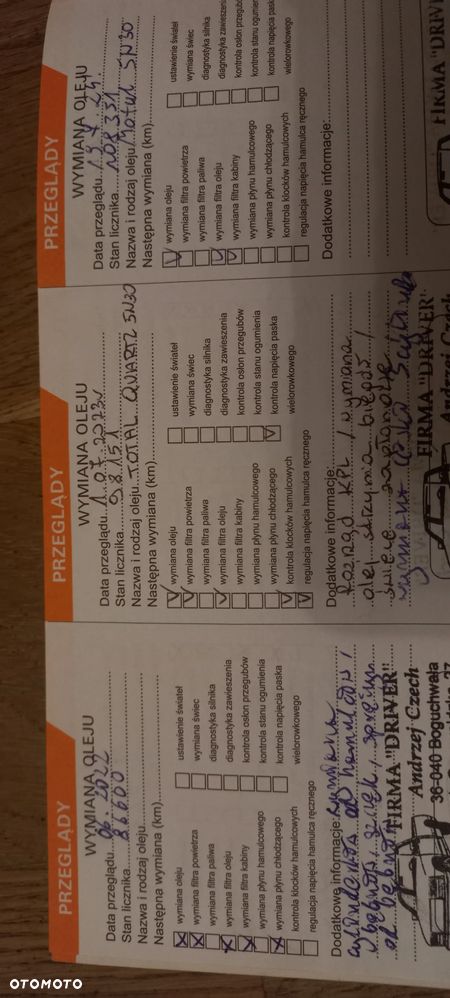 PRZEGLĄDY
WYMIANA OLEJU
Data przeglądu 06.2022
Stan licznika 86600
Nazwa i rodzaj oleju
Następna wymiana (km)
wymiana oleju
wymiana filtra powietrza
wymiana filtra paliwa
wymiana filtra oleju
wymiana filtra kabiny
wymiana płynu hamulcowego
wymiana płynu chłodzącego
kontrola klocków hamulcowych
regulacja napięcia hamulca ręcznego
ustawienie świateł
wymiana świec
diagnostyka silnika
diagnostyka zawieszenia
kontrola osłon przegubów
kontrola stanu ogumienia
kontrola napięcia paska
wielorowkowego
Dodatkowe informacje: wymiana
FIRMA "DRIVER"
Andrzej Czech
36-040 Boguchwała
PRZEGLĄDY
WYMIANA OLEJU
Data przeglądu 1.07.2023
Stan licznika 98151
Nazwa i rodzaj oleju TOTAL QUARTZ 5W30
Następna wymiana (km)
wymiana oleju
wymiana filtra powietrza
wymiana filtra paliwa
wymiana filtra oleju
wymiana filtra kabiny
wymiana płynu hamulcowego
wymiana płynu chłodzącego
kontrola klocków hamulcowych
regulacja napięcia hamulca ręcznego
ustawienie świateł
wymiana świec
diagnostyka silnika
diagnostyka zawieszenia
kontrola osłon przegubów
kontrola stanu ogumienia
kontrola napięcia paska
wielorowkowego
Dodatkowe informacje:
Rozrząd KPL / wymiana
olej skrzynia biegów /
świece zapłonowe
wymiana
FIRMA "DRIVER"
Andrzej Czech
PRZEGLĄDY
WYMIANA OLEJU
Data przeglądu
Stan licznika 108351
Nazwa i rodzaj oleju Total 5W30
Następna wymiana (km)
wymiana oleju
wymiana filtra powietrza
wymiana filtra paliwa
wymiana filtra oleju
wymiana filtra kabiny
wymiana płynu hamulcowego
wymiana płynu chłodzącego
kontrola klocków hamulcowych
regulacja napięcia hamulca ręcznego
ustawienie świateł
wymiana świec
diagnostyka silnika
diagnostyka zawieszenia
kontrola osłon przegubów
kontrola stanu ogumienia
kontrola napięcia paska
wielorowkowego
Dodatkowe informacje:
FIRMA "DRIVER"
OTOMOTO